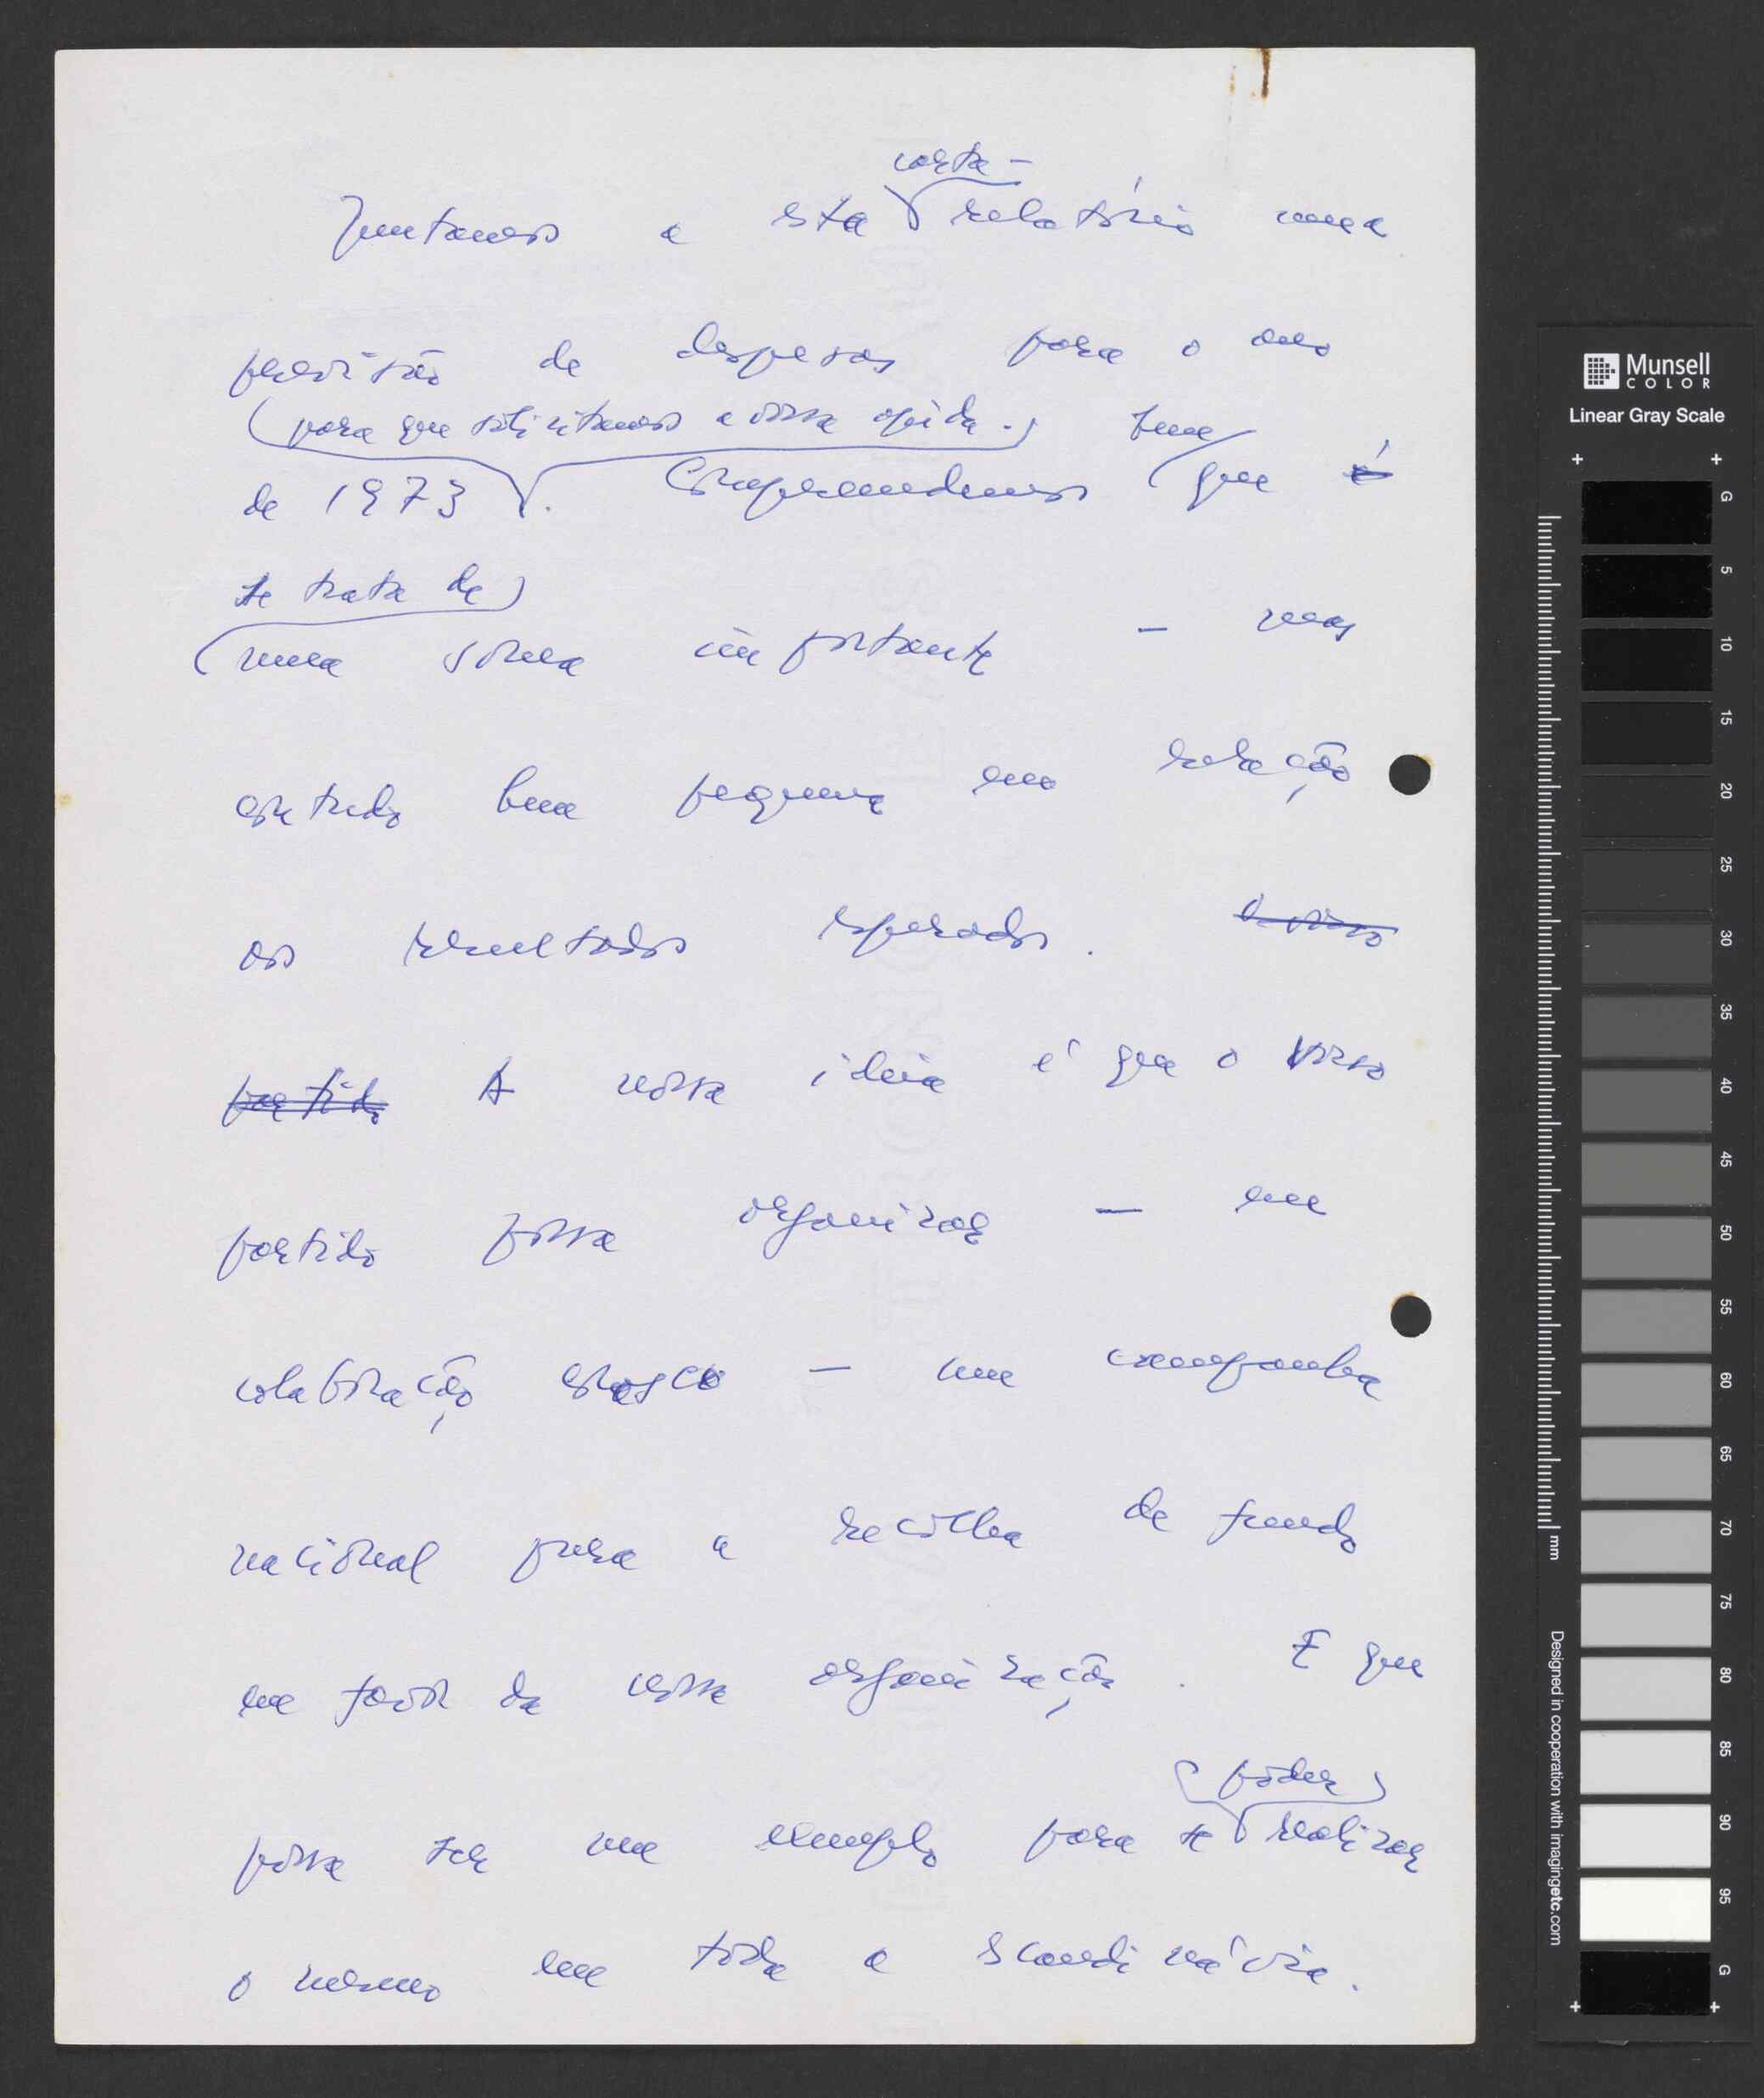 carta –
Juntamos a esta relatório uma
previsão de despesas para o ano
(para que solicitamos a vossa ajuda.) bem
de 1973. Compreendemos que é
se trata de
uma soma importante – mas
contudo bem pequena em relação
aos resultados esperados. O vosso
partido A nossa ideia é que o vosso
partido possa organizar – em
colaboração conosco – uma campanha
nacional para a recolha de fundos
em favor da nossa organização. E que
(poder)
possa ser um exemplo para se realizar
o mesmo em toda a Scandinávia.
Munsell
COLOR
Linear Gray Scale
G
5
10
15
20
25
30
35
40
45
50
55
60
65
70
75
80
85
90
95
G
mm
Designed in cooperation with imagingetc.com